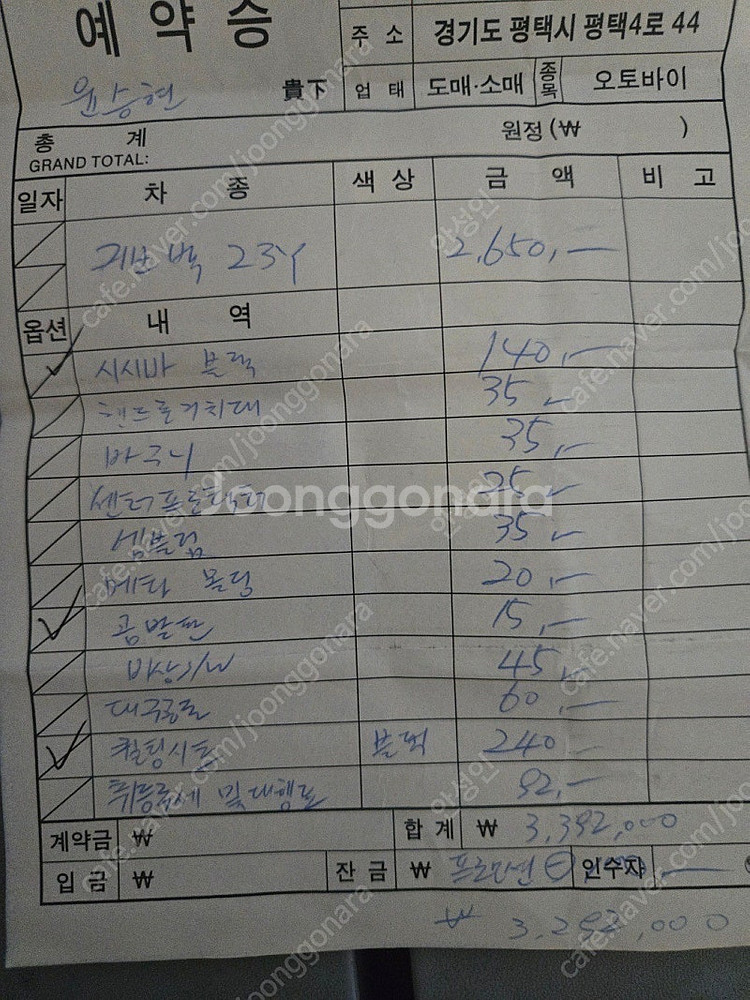 예약증
주소 경기도 평택시 평택4로 44
윤승현 貴下 업태 도매·소매 종목 오토바이
총계 원정 (₩ )
GRAND TOTAL:
일자 차종 색상 금액 비고
23Y 2,650,—
옵션 내역
✓ 시시바 블랙 140,—
핸드폰거치대 35,—
바구니 35,—
센터프로텍터 25,—
엠블럼 35,—
메타 몰딩 20,—
✓ 곰발판 15,—
45,—
60,—
✓ 퀼팅시트 블랙 240,—
취등록세 및 대행료 92,—
계약금 ₩ 합계 ₩ 3,392,000
입금 ₩ 잔금 ₩ 프로모션 ⊖ 인수자
₩ 3,292,000
joonggonara
cafe.naver.com/joonggonara
안성인